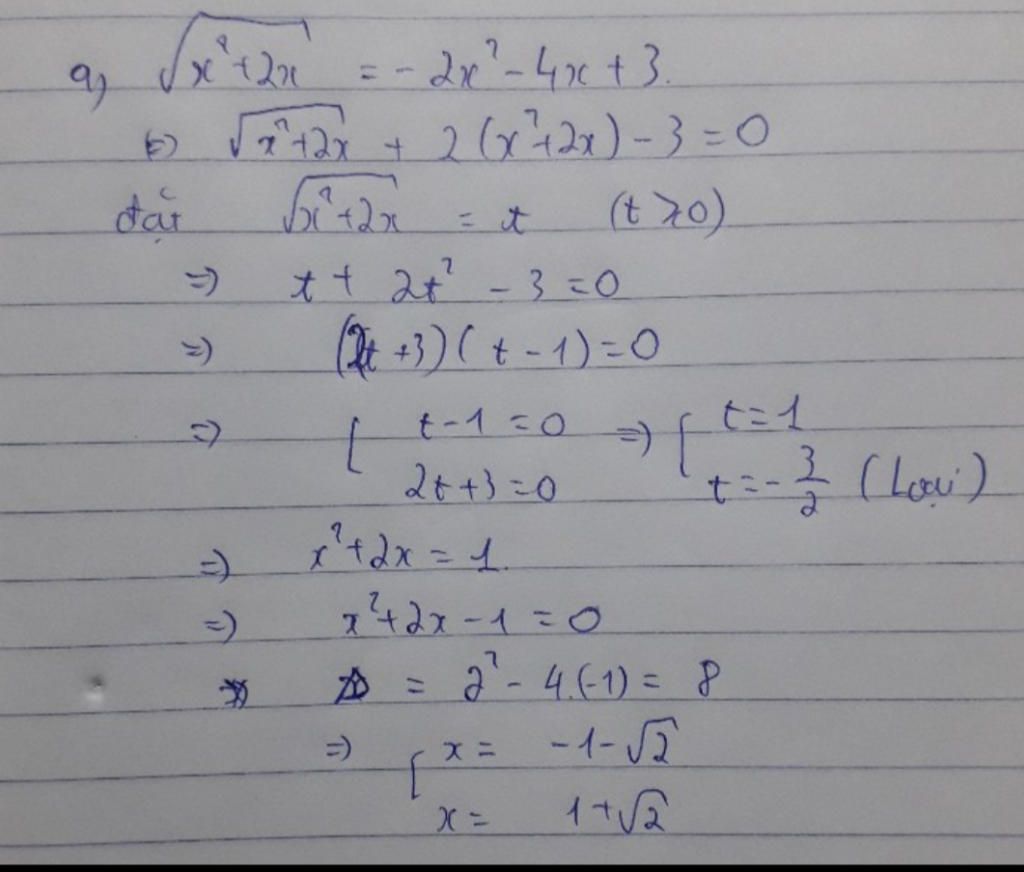 a, √(x²+2x) = - 2x² - 4x + 3.
⇔ √(x²+2x) + 2 (x²+2x) - 3 = 0
đặt √(x²+2x) = t (t ≥ 0)
⇒ t + 2t² - 3 = 0
⇒ (2t +3)( t - 1) = 0
⇒ [ t - 1 = 0 ⇒ [ t = 1
2t + 3 = 0 t = - 3/2 (Loại)
⇒ x² + 2x = 1.
⇒ x² + 2x - 1 = 0
Δ = 2² - 4.(-1) = 8
⇒ [ x = -1-√2
x = 1+√2